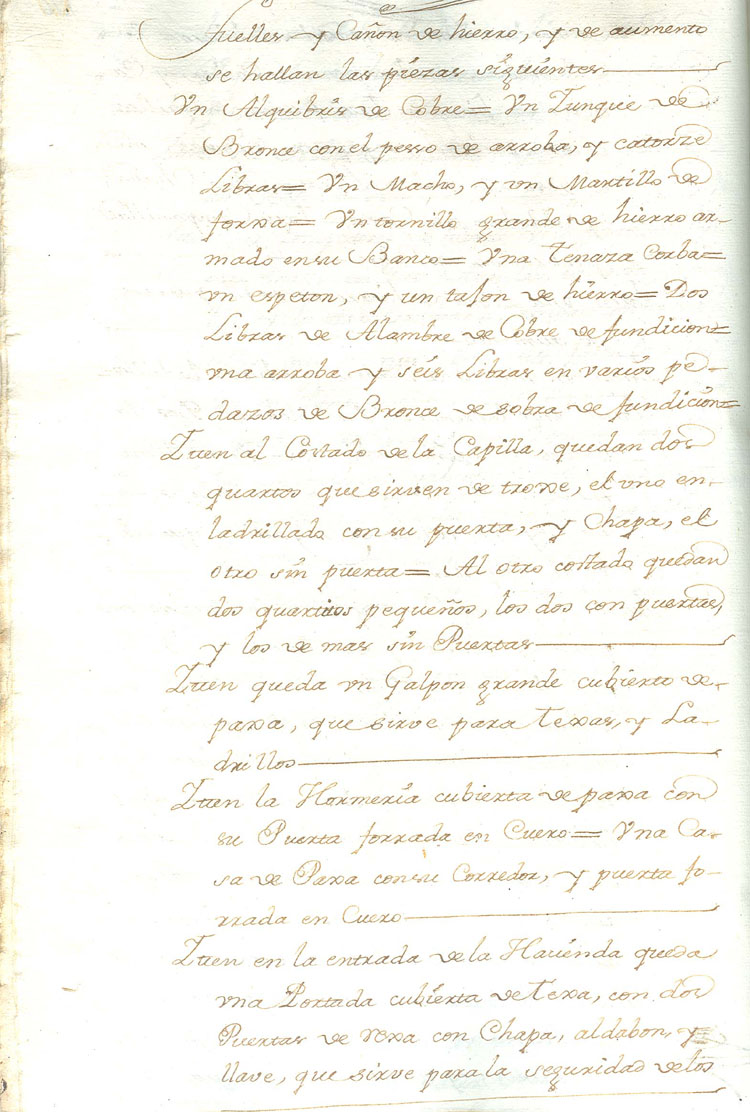 fuelles y Cañon de hierro, y de aumento
se hallan las piezas siguientes
Vn Alquibris de Cobre= Vn Iunque de
Bronce con el pesso de arroba, y catorze
Libras= Vn Macho, y vn Martillo de
forxa= Vn tornillo grande de hierro ar-
mado en su Banco= Vna Tenaza Corba=
vn espeton, y un talon de hierro= Dos
Libras de Alambre de Cobre de fundicion=
vna arroba y seis Libras en varios pe-
dazos de Bronce de sobra de fundicion=
Ituen al Costado de la Capilla, quedan dos
quartos que sirven de troxe, el vno en-
ladrillado con su puerta, y Chapa, el
otro sin puerta= Al otro costado quedan
dos quartitos pequeños, los dos con puertas,
y los de mas sin Puertas
Ituen queda vn Galpon grande cubierto de
paxa, que sirve para Texas, y La-
drillos
Ituen la Hormeria cubierta de paxa con
su Puerta forrada en Cuero= Vna Ca-
sa de Paxa con su Corredor, y puerta fo-
rrada en Cuero
Ituen en la entrada de la Hacienda queda
vna Portada cubierta de Texa, con dos
Puertas de rexa con Chapa, aldabon, y
llave, que sirve para la seguridad de los